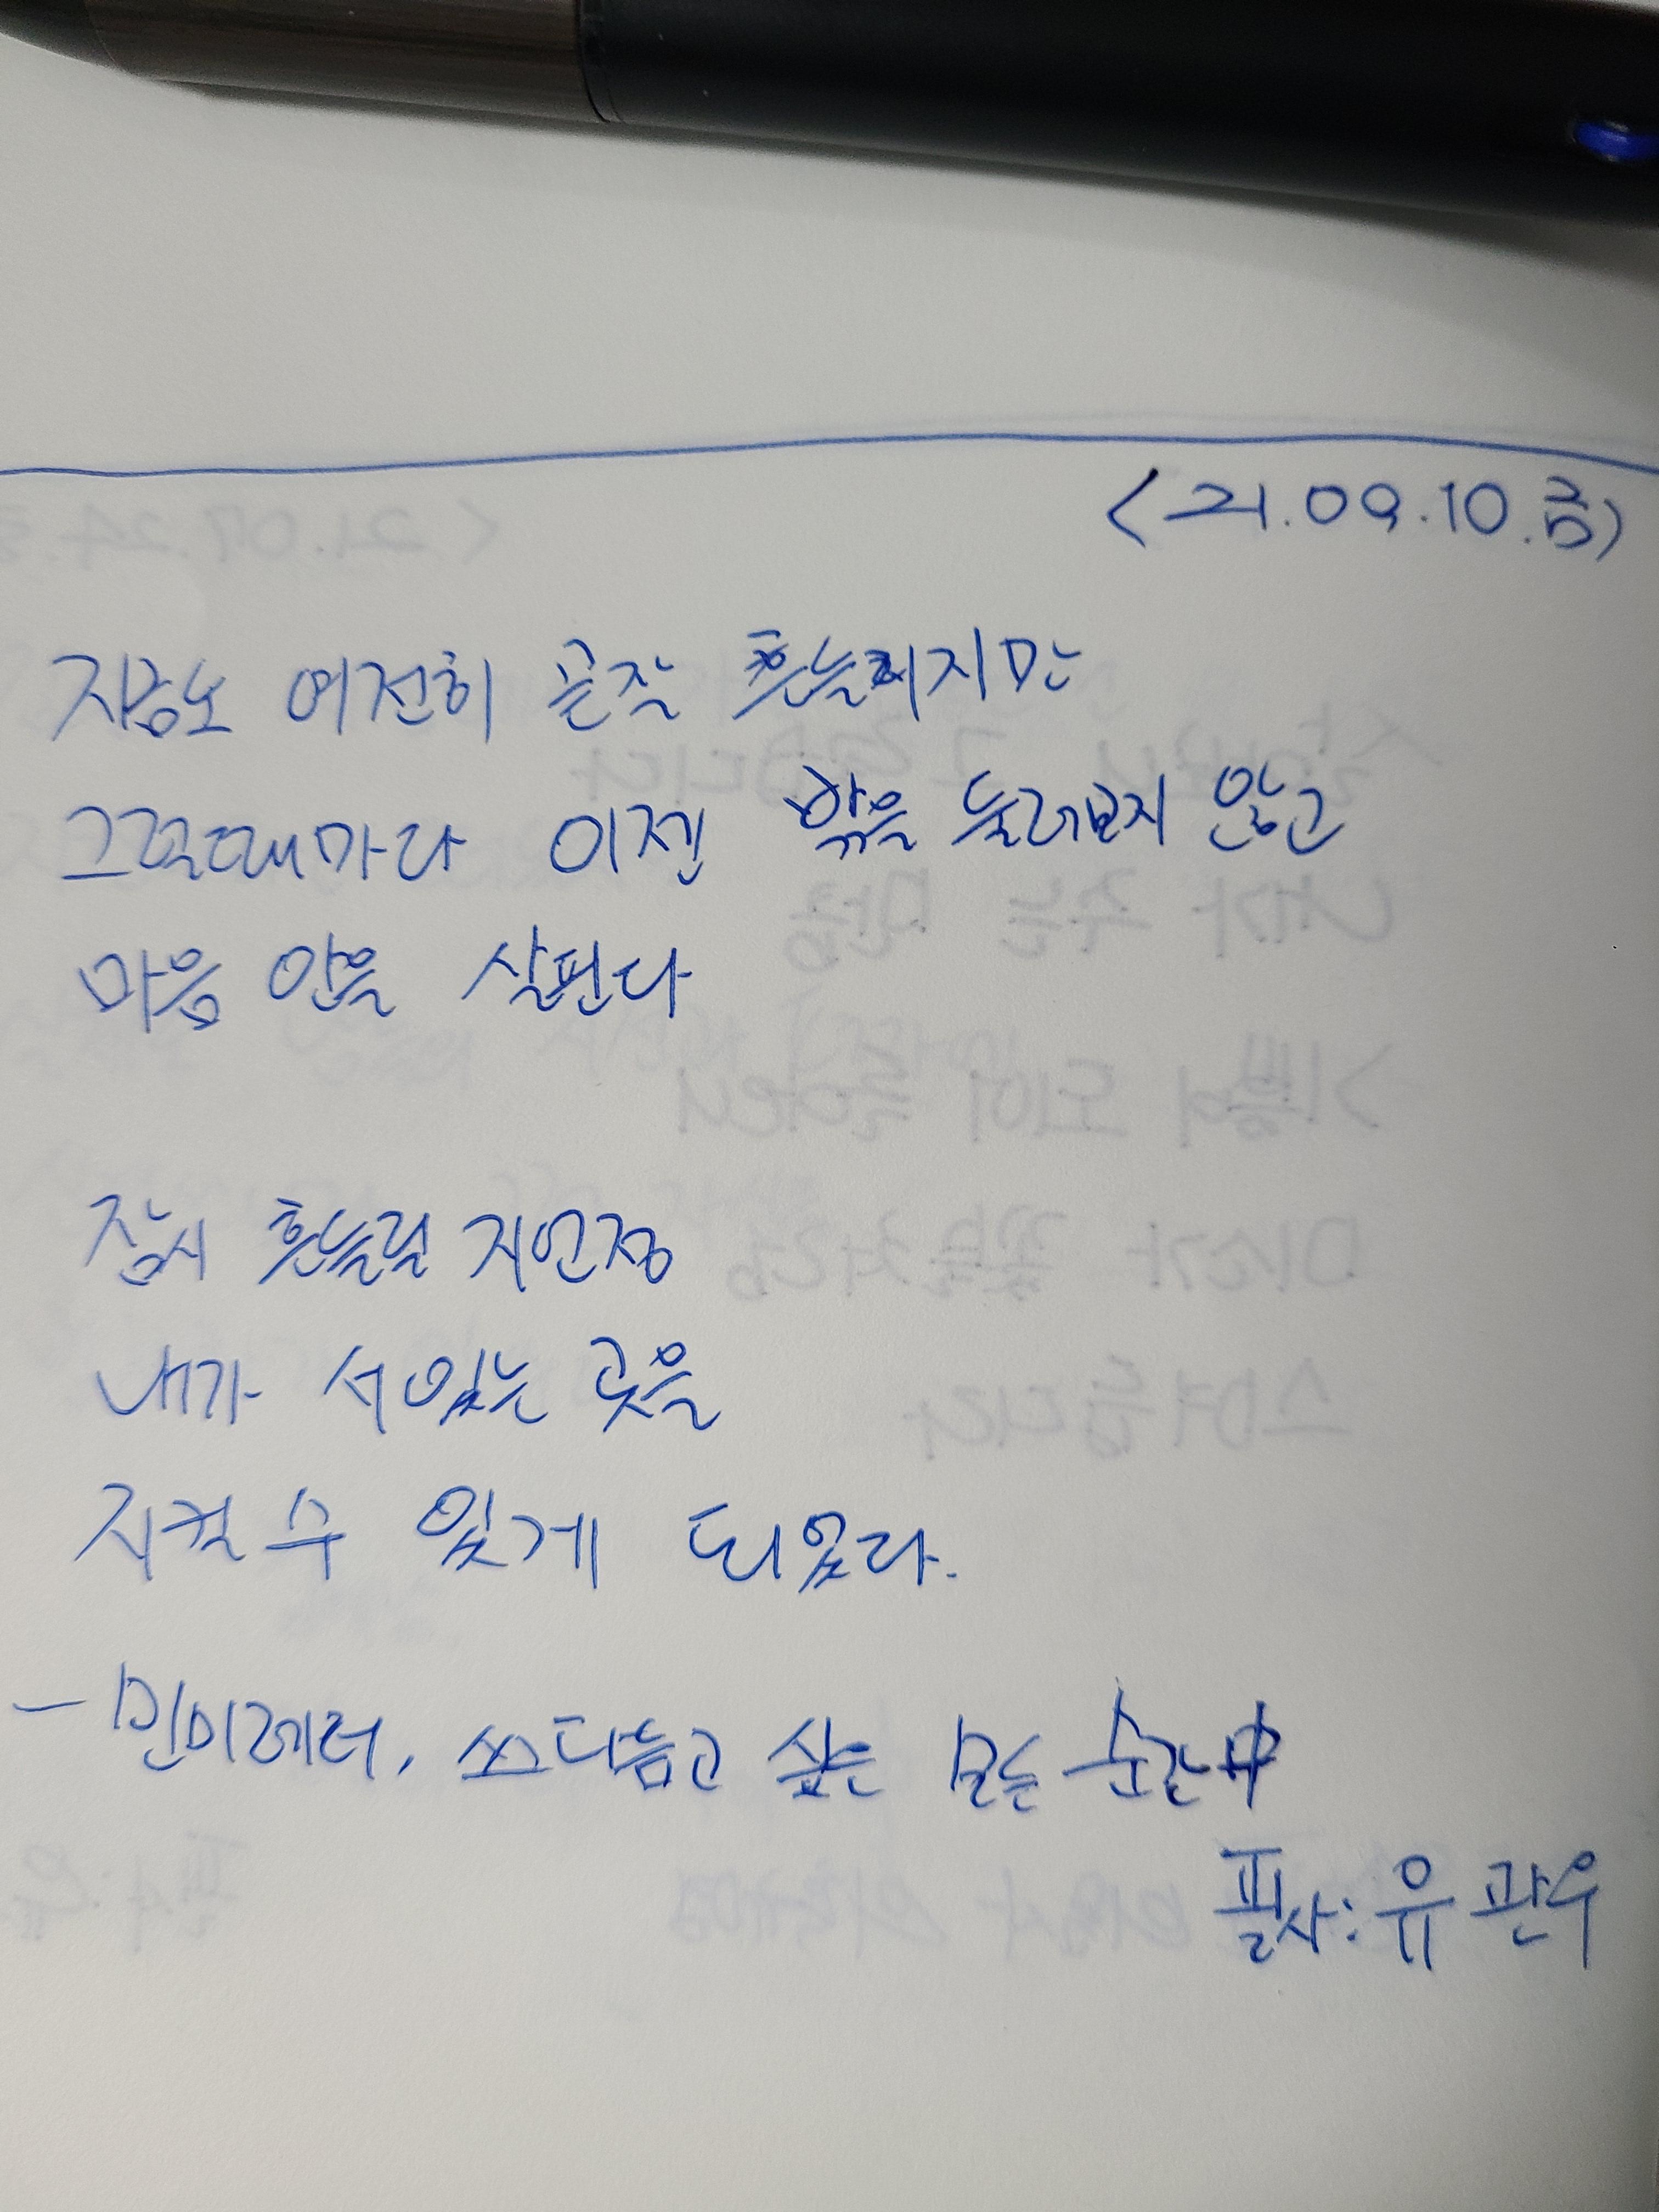 <21.09.10.금>
지금도 여전히 곧잘 흔들리지만
그럴때마다 이젠 밖을 둘러보지 않고
마음 안을 살핀다
잠시 흔들릴 지언정
내가 서있는 곳을
지킬 수 있게 되었다.
- 민미레터, 쓰다듬고 싶은 모든 순간 中
필사: 유관우